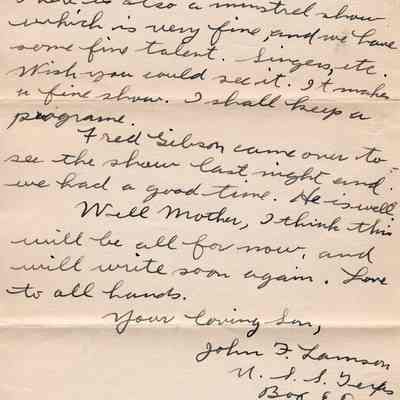 There is also a minstrel show
which is very fine, and we have
some fine talent. Singers, etc.
Wish you could see it. It makes
a fine show. I shall keep a
programe.
Fred Gibson came over to
see the show last night and
we had a good time. He is well.
Well Mother, I think this
will be all for now, and
will write soon again. Love
to all hands.
Your loving Son,
John F. Lamson
U. S. S.
Box